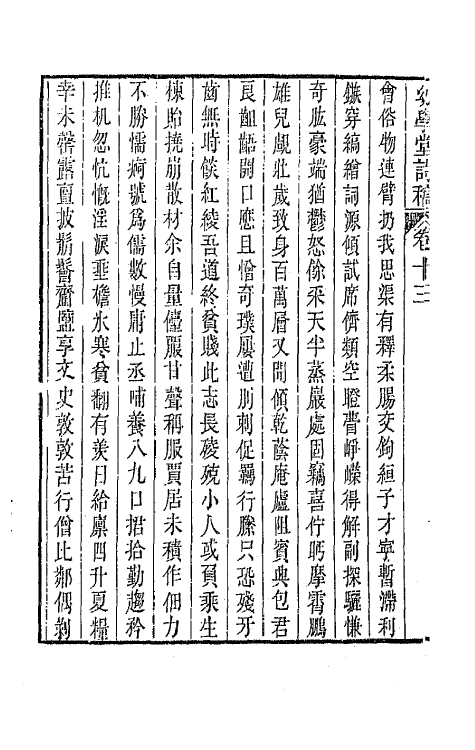 幼學堂詩稿 卷十三
會俗物連臂扔我思渠有釋柔腸交鉤絙子才寧暫滯利
鏃穿縞繒詞源傾試席儕類空瞪瞢崢嶸得解副探驪慊
奇肱豪端猶鬱怒餘采天半蒸巖處固竊喜佇眄摩霄鵬
雄兒覷壯歲致身百萬層又聞傾乾蔭庵廬阻賓典包君
艮齟齬開口應且憎奇璞屢遭刖刺促羈行縢只恐殘牙
齒無時餤紅綾吾道終貧賤此志長稜殑小人或負乘生
棟貽撓崩散材余自量儓服甘聲稱服賈居未積作佃力
不勝懦病號爲儒數慢庸止丞哺養八九口招拾勤趨矜
推机忽忼慨淫淚垂檐氷寒貧翻有羨日給廩四升夏糧
幸未罄露頂披鬅鬙齏鹽享文史敦敦苦行僧比鄰偶剝